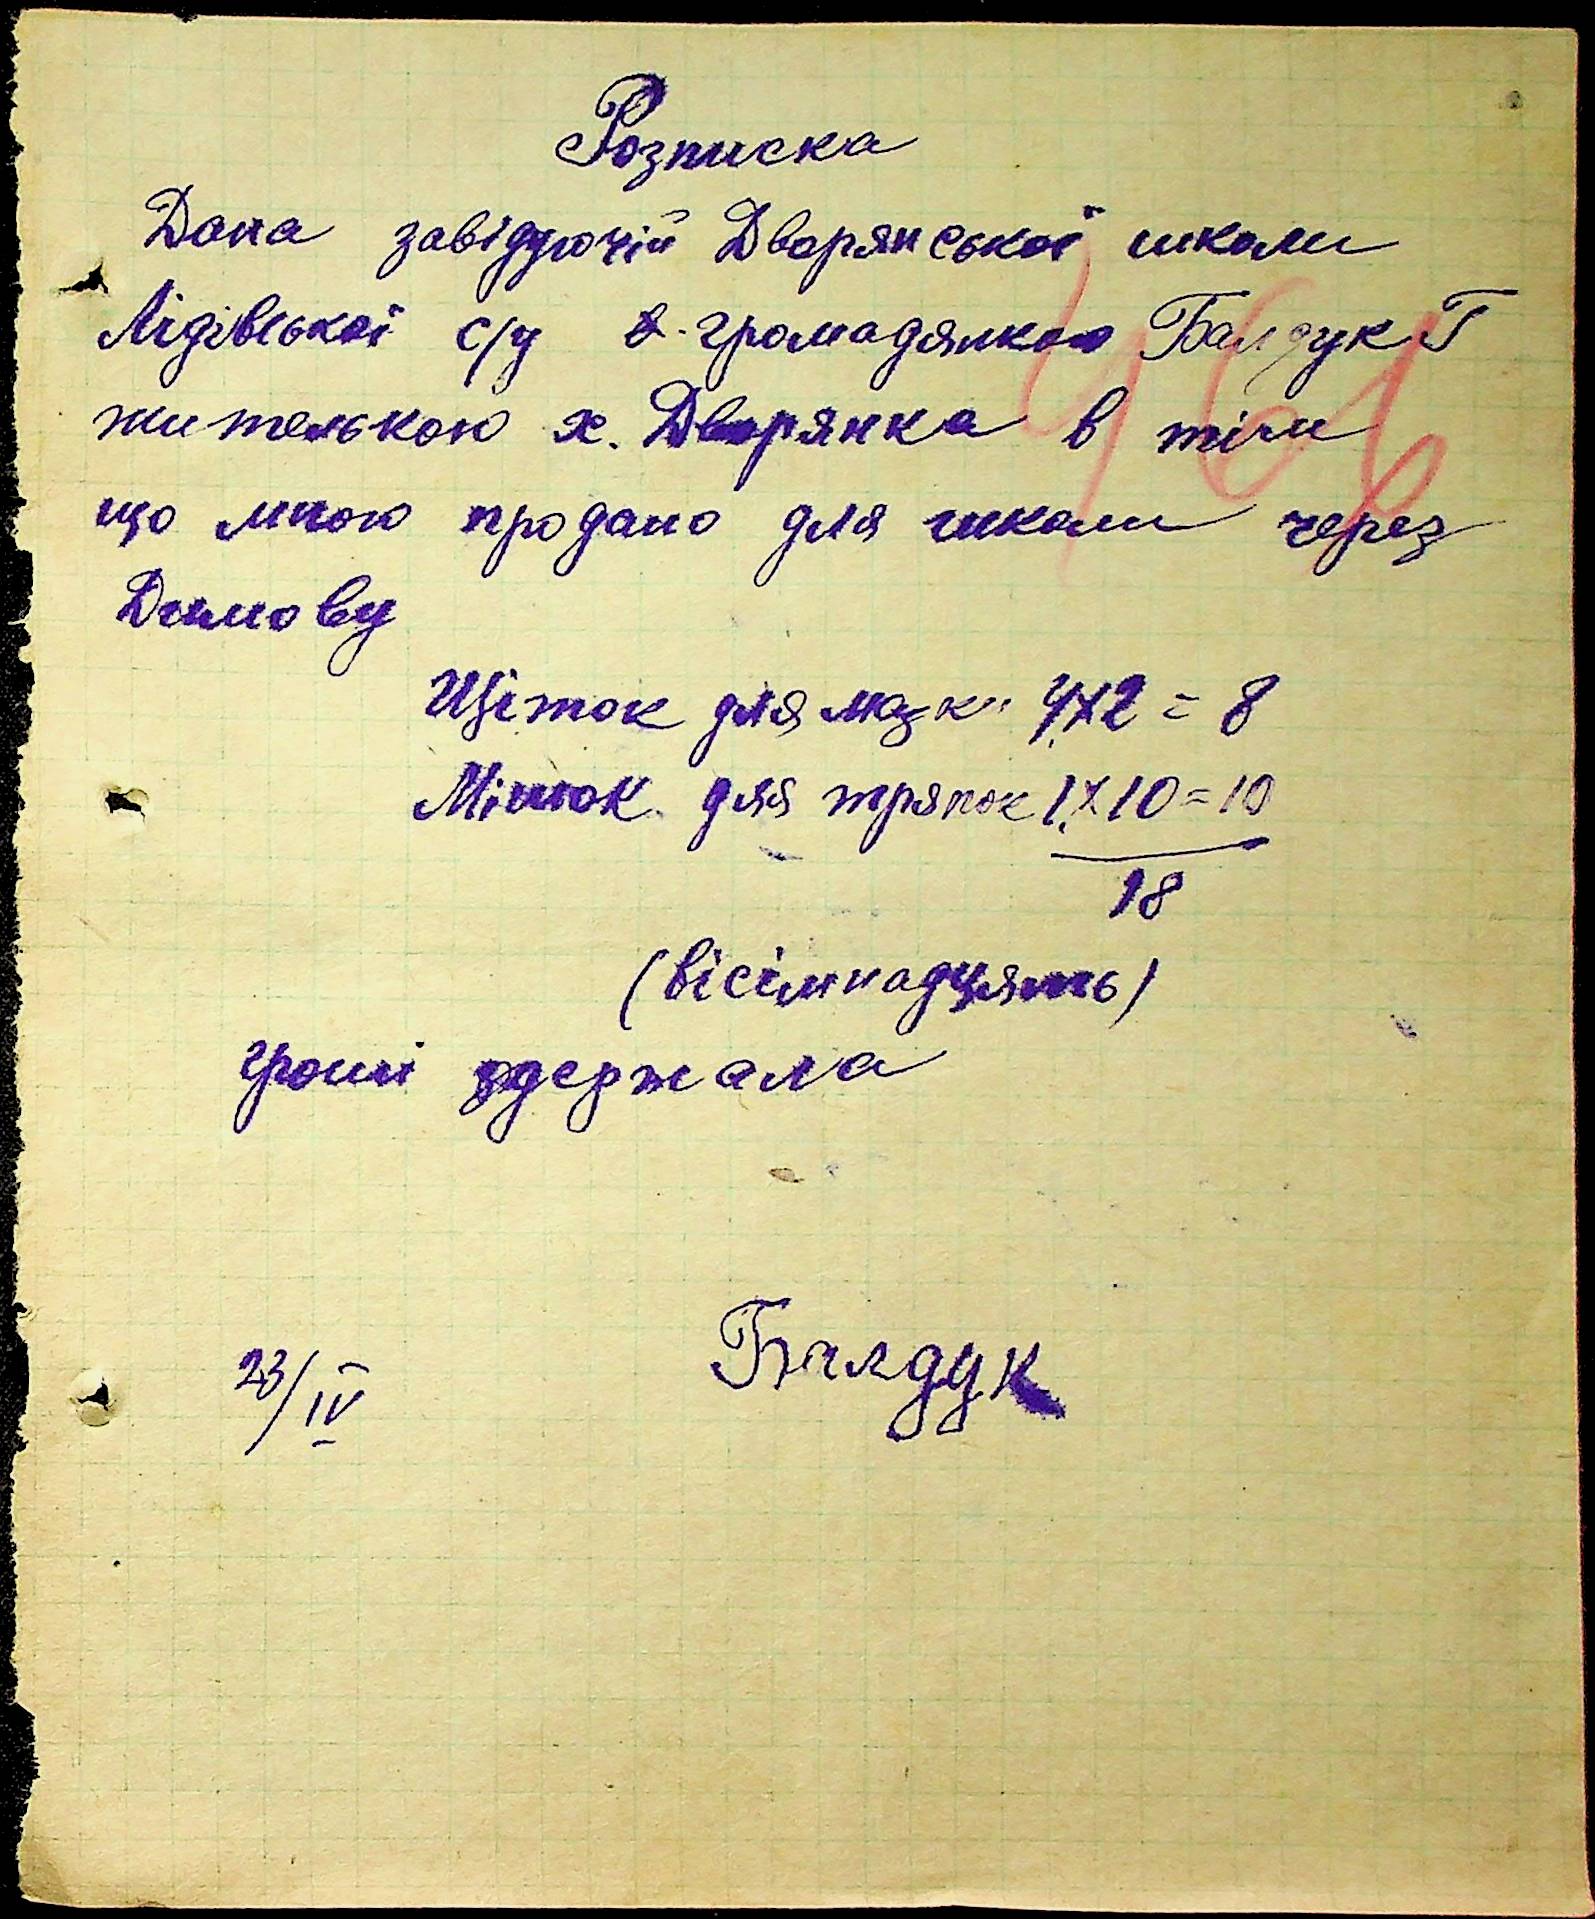 Розписка
Дана завідуючій Дворянської школи
Лідівської с/у громадянкою Балдук Г
жителькою х. Дворянка в тім
що мною продано для школи через
Димову
Щіток для мазк. 4х2 = 8
Мішок для тряпок 1х10 = 10
18
(вісімнадцять)
гроші одержала
Балдук
23/IV